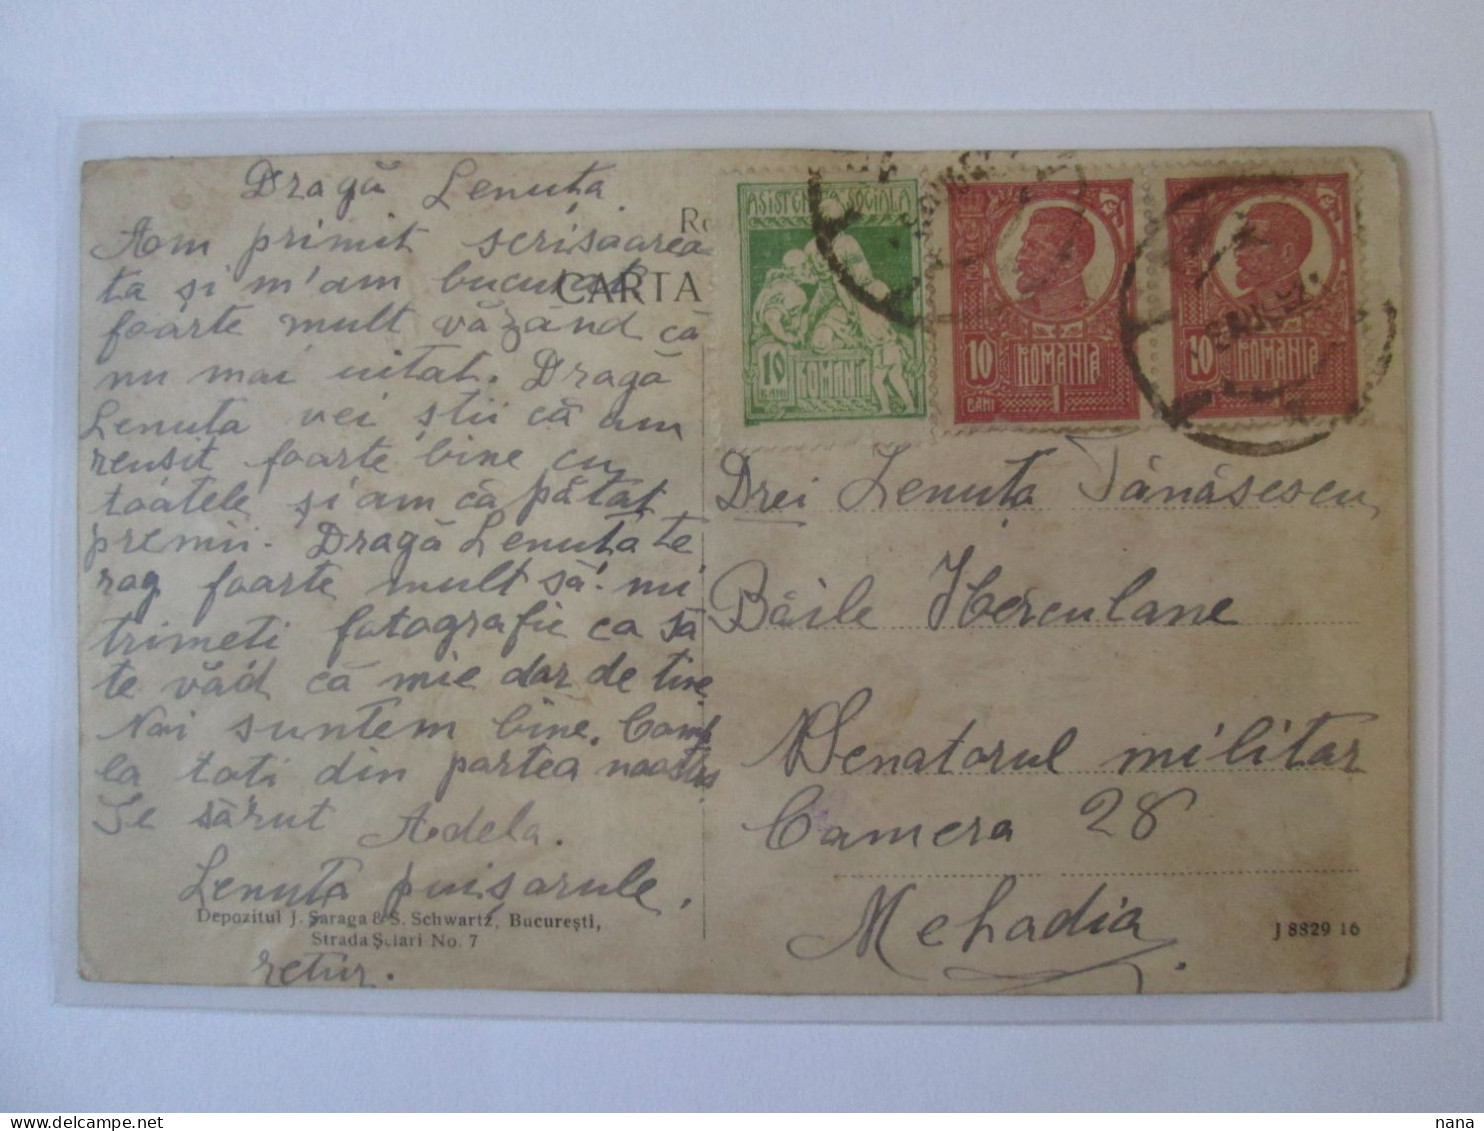 Dragă Lenuța
Aom primit scrisoarea
ta și m'am bucurat
foarte mult văzând că
nu mai uitat. Dragă
Lenuța vei știi că am
reusit foarte bine cu
toatele și am căpătat
premii. Dragă Lenuța te
rog foarte mult să mi
trimeti fotografie ca să
te văd că mie dor de tine
Noi suntem bine. Comp
la toti din partea noastră
Te sărut Adela.
Lenuța puișorule.
retur.
CARTA
Depozitul J. Șaraga & S. Schwartz, București,
Strada Șelari No. 7
ASISTENȚA SOCIALA
10
BANI
ROMANIA
10
BANI
ROMANIA
10
ROMANIA
Drei Lenuța Tănăsescu
Băile Herculane
Senatorul militar
Camera 28
Mehadia
J 8829 16
nana